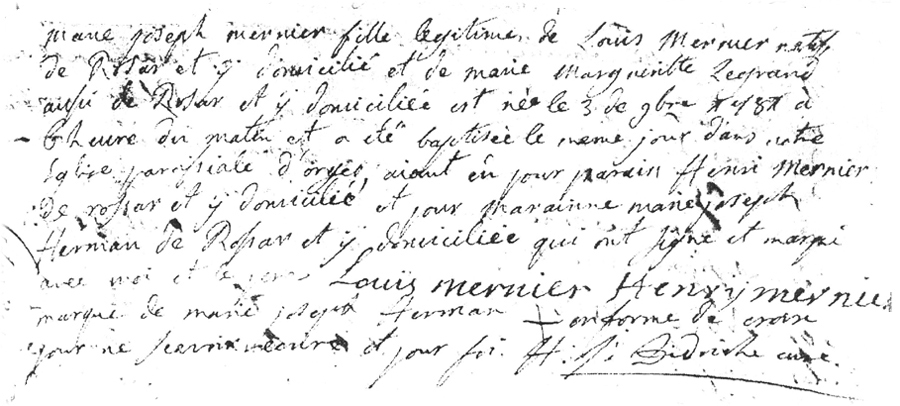 marie joseph mernier fille legitime de Louis Mernier natif
de Rossar et y domicilié et de marie Margueritte Legrand
aussi de Rossar et y domiciliée est née le 3 de 9bre 1781 à
6 heure du matin et a été baptisée le meme jour dans notre
Eglise paroissiale d'orgeo, aiant eu pour parain Henri Mernier
de rossar et y domicilié et pour marainne marie joseph
Herman de Rossar et y domiciliée qui ont signé et marqué
avec moi et le pere Louis mernier Henry mernier
marque de marie joseph Herman + en forme de croix
pour ne scavoir ecrire et pour foi. H. J. curé